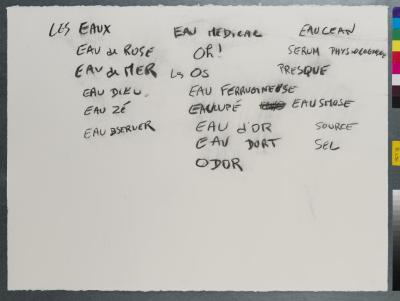 LES EAUX
EAU de ROSE
EAU de MER
EAU DIEU.
EAU ZÉ
EAU BSERVER
EAU MEDICAL
Oh!
Les OS
EAU FERRUGINEUSE
EAU d'OR
EAU DORT
ODOR
EAUCEAN
SERUM PHYSIOLOGIQUE
PRESQUE
EAUSMOSE
SOURCE
SEL